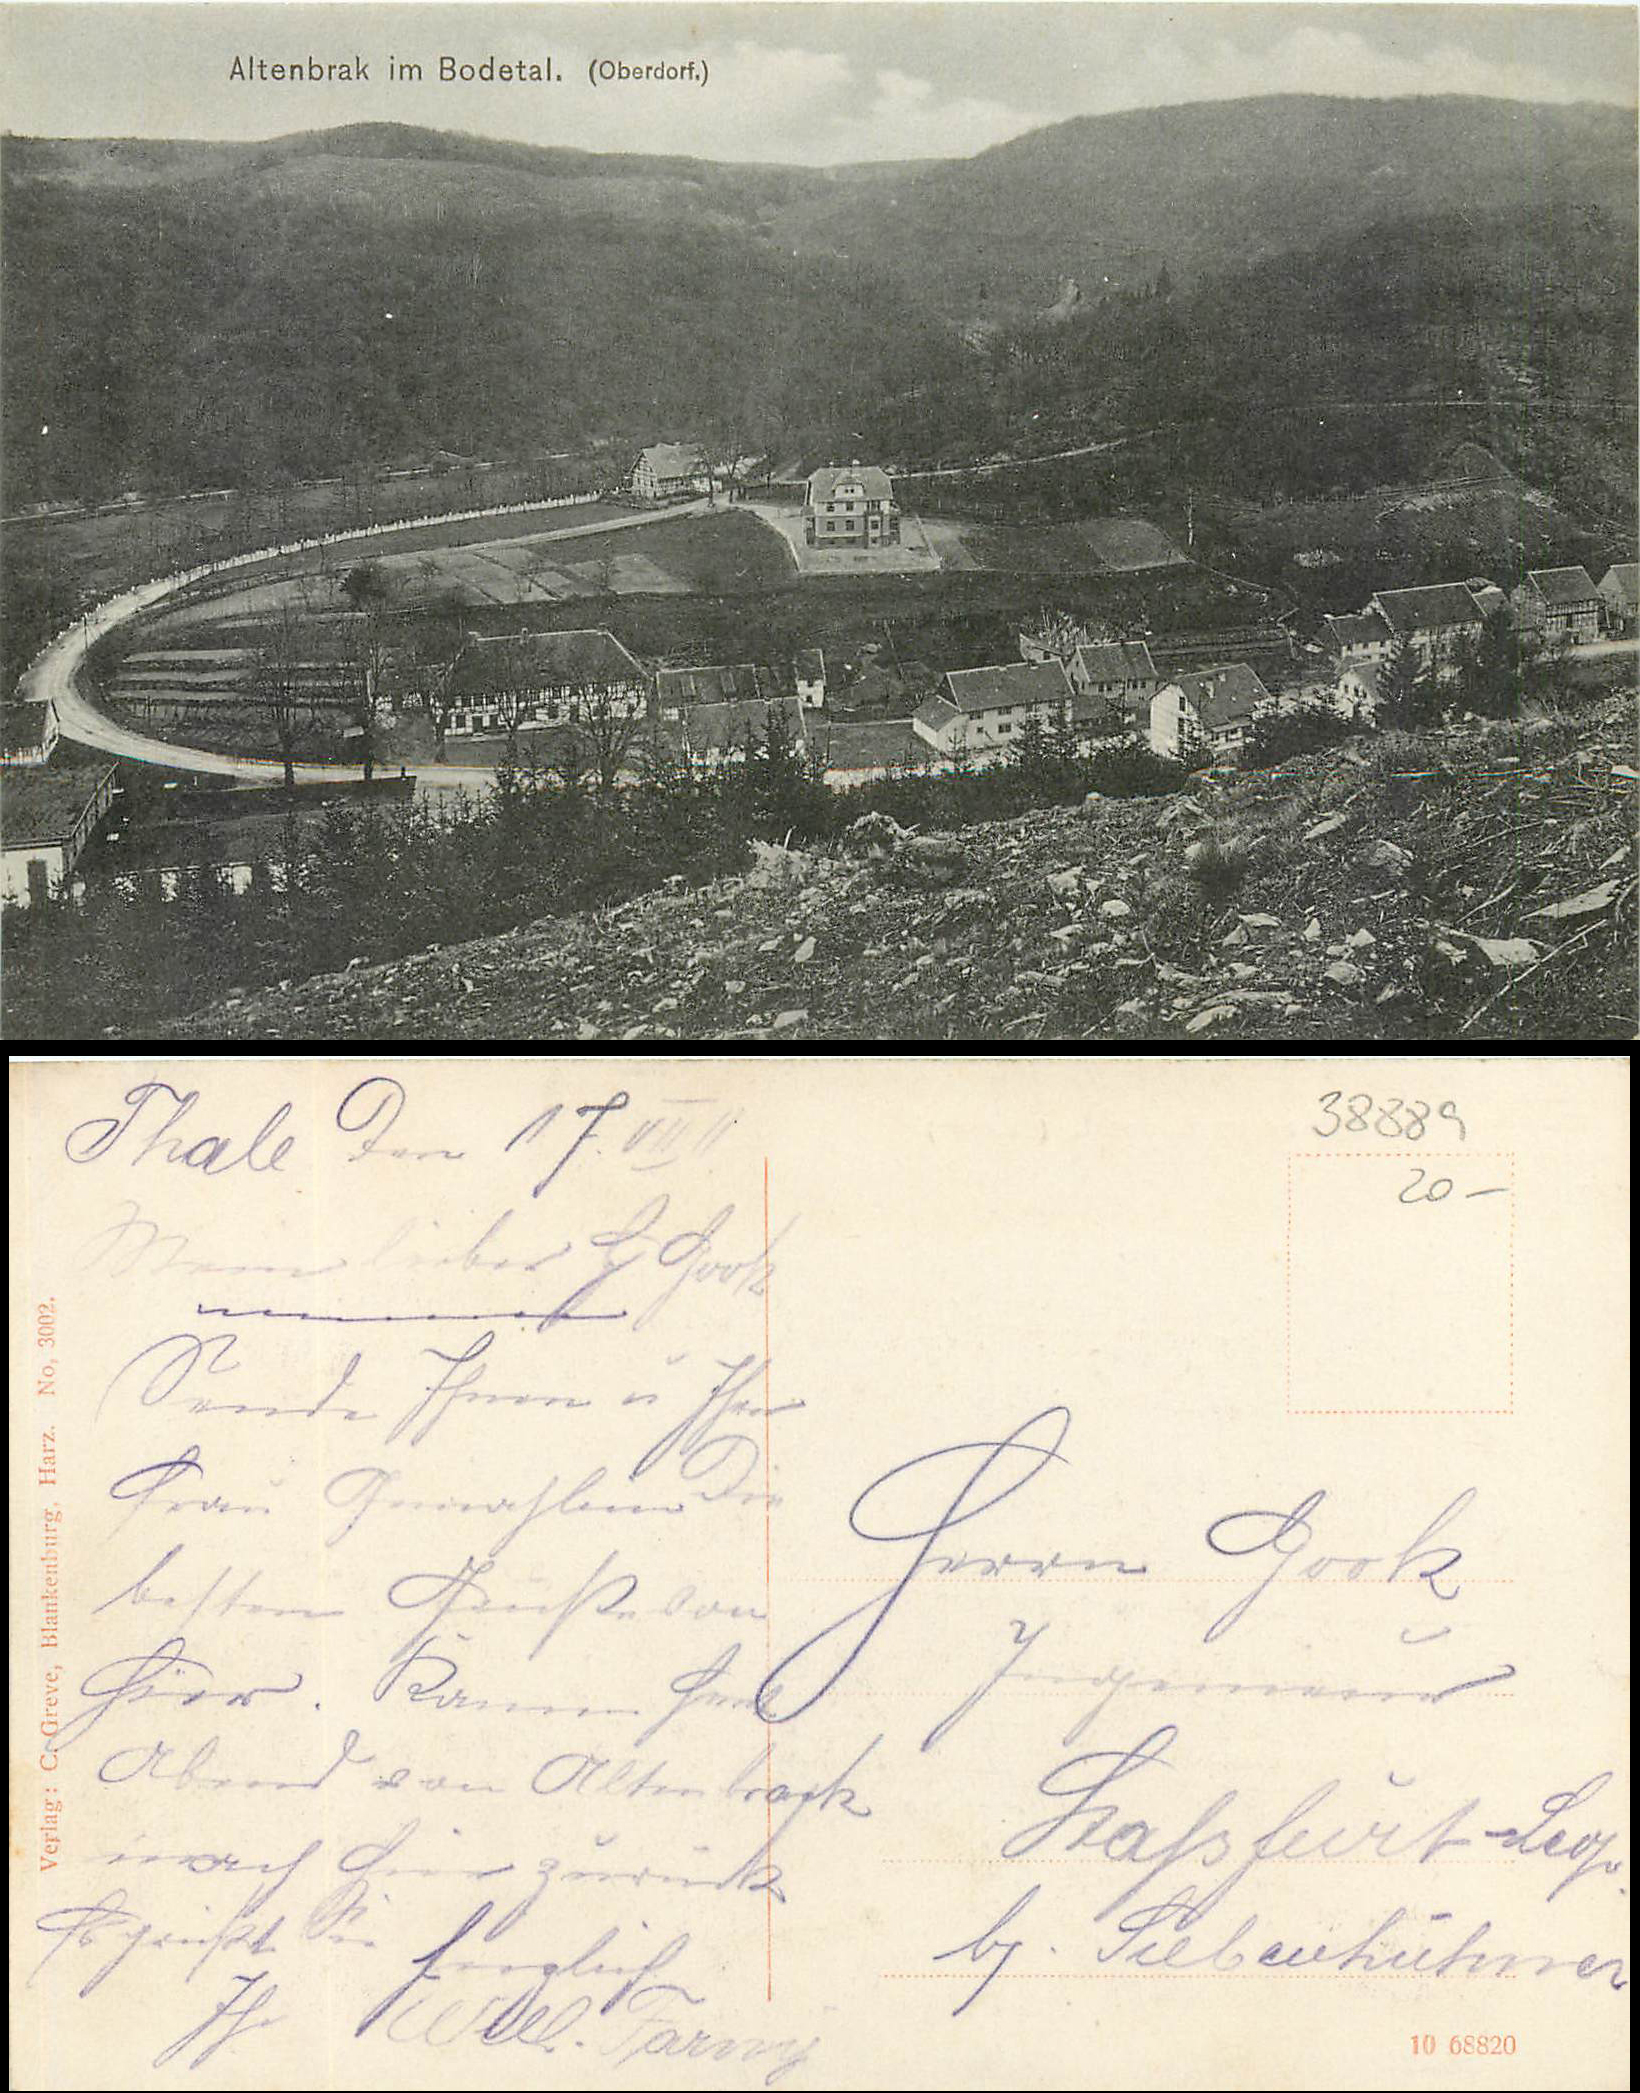 Altenbrak im Bodetal. (Oberdorf.)
Thale Den 17. VII 11
Mein lieber H Gook
Sende Ihnen u Ihrer
Frau Gemahlin Die
besten Grüße von
hier. Kamm heut
Abend von Altenbrack
nach hier zurück
Es grüßt Sie herzlich
Ihr Will.
Verlag: C. Greve, Blankenburg, Harz. No, 3002.
38889
20 –
Herrn Gook
Ingenieur
Stassfurt-Leop.
bj. Siebenhühner
10 68820